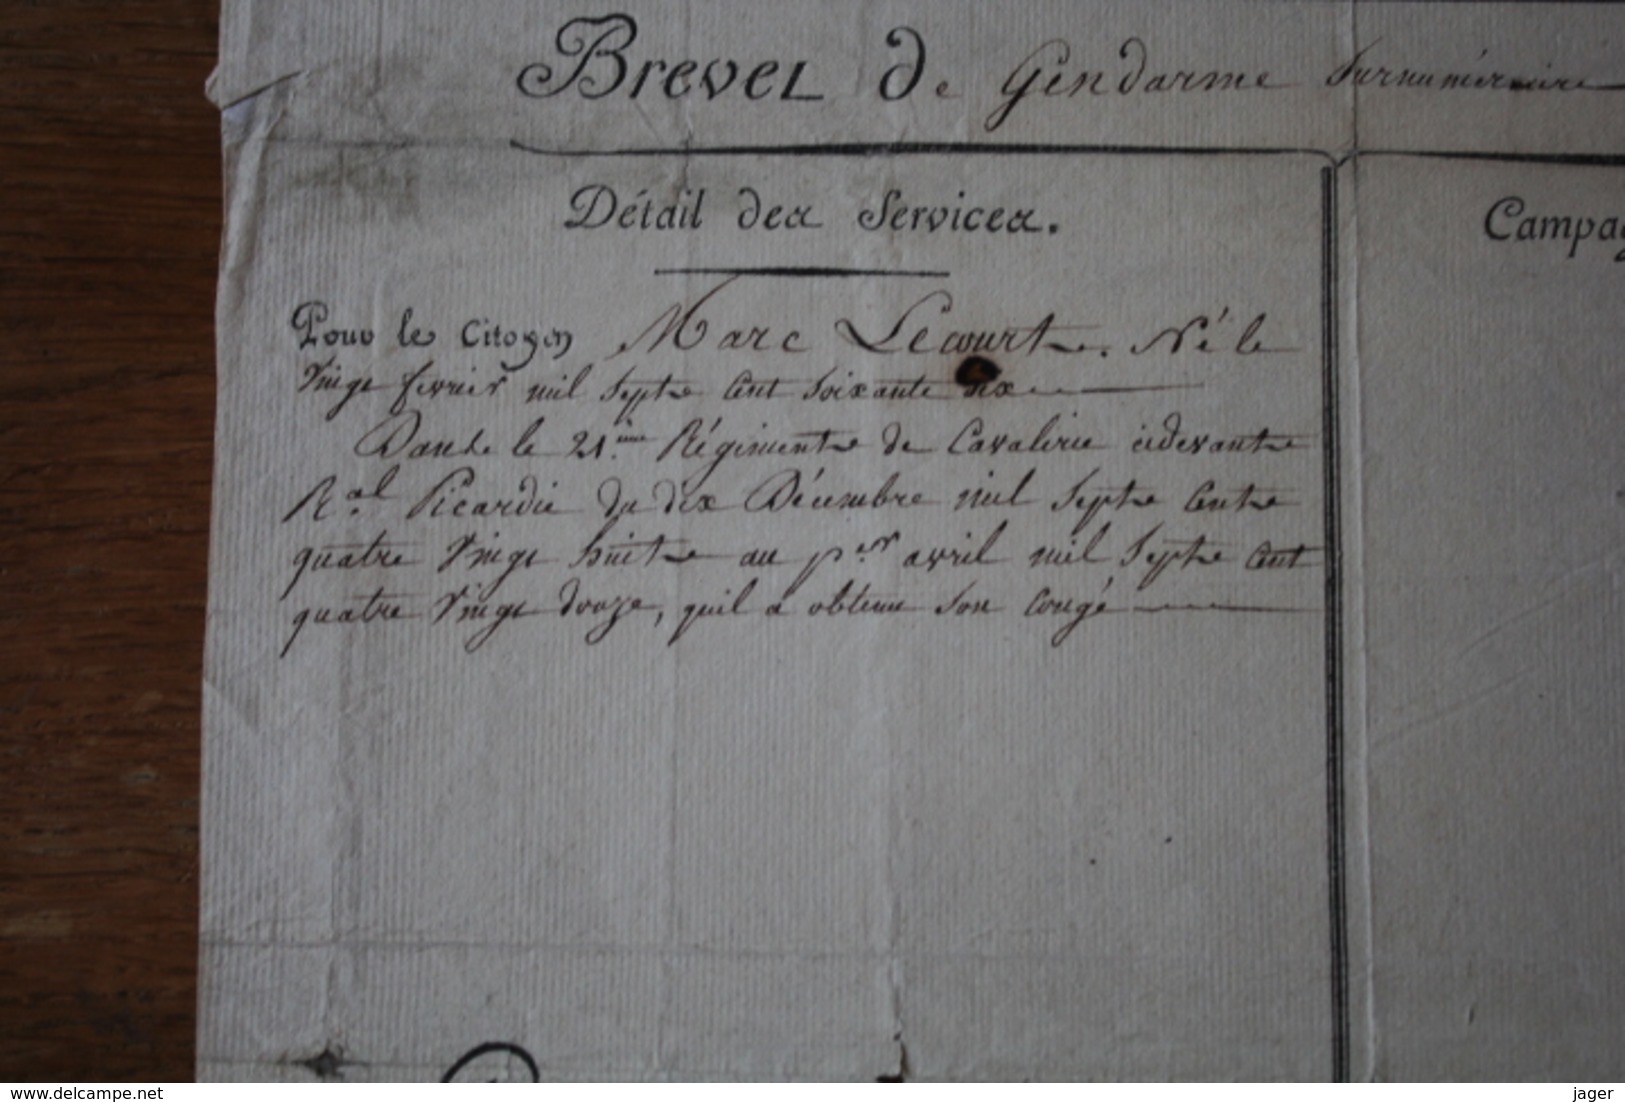 Brevet de Gendarme Surnuméraire
Détail des Services.
Campag
Pour le Citoyen Marc Lecourt. Né le
Vingt fevrier mil Sept Cent Soixante dix
Dans le 21.ème Régiment de Cavalerie cidevant
R.al Picardie du dix Décembre mil Sept Cent
quatre Vingt huit au p.er avril mil Sept Cent
quatre Vingt douze, quil a obtenu Son Congé
www.delcampe.net
jager